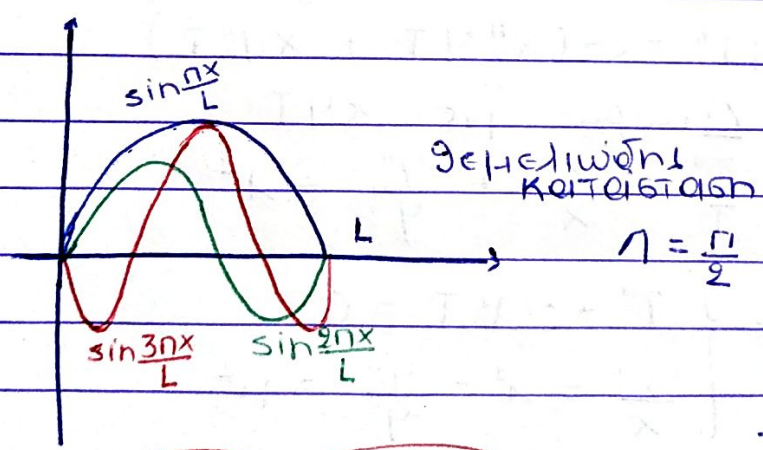 sin πx/L
θεμελιώδης
κατάσταση
L
n = π/2
sin 3πx/L
sin 2πx/L